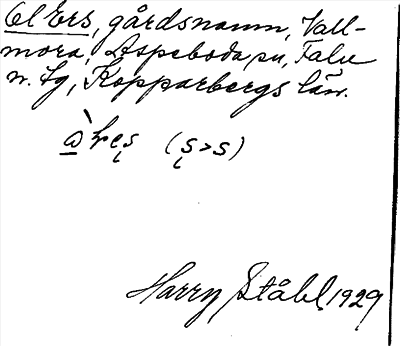 Ol Ers, gårdsnamn, Vall-
mora, Aspeboda sn, Falu
n. tg, Kopparbergs län.
(s̩ > s)
Harry Ståhl 1929